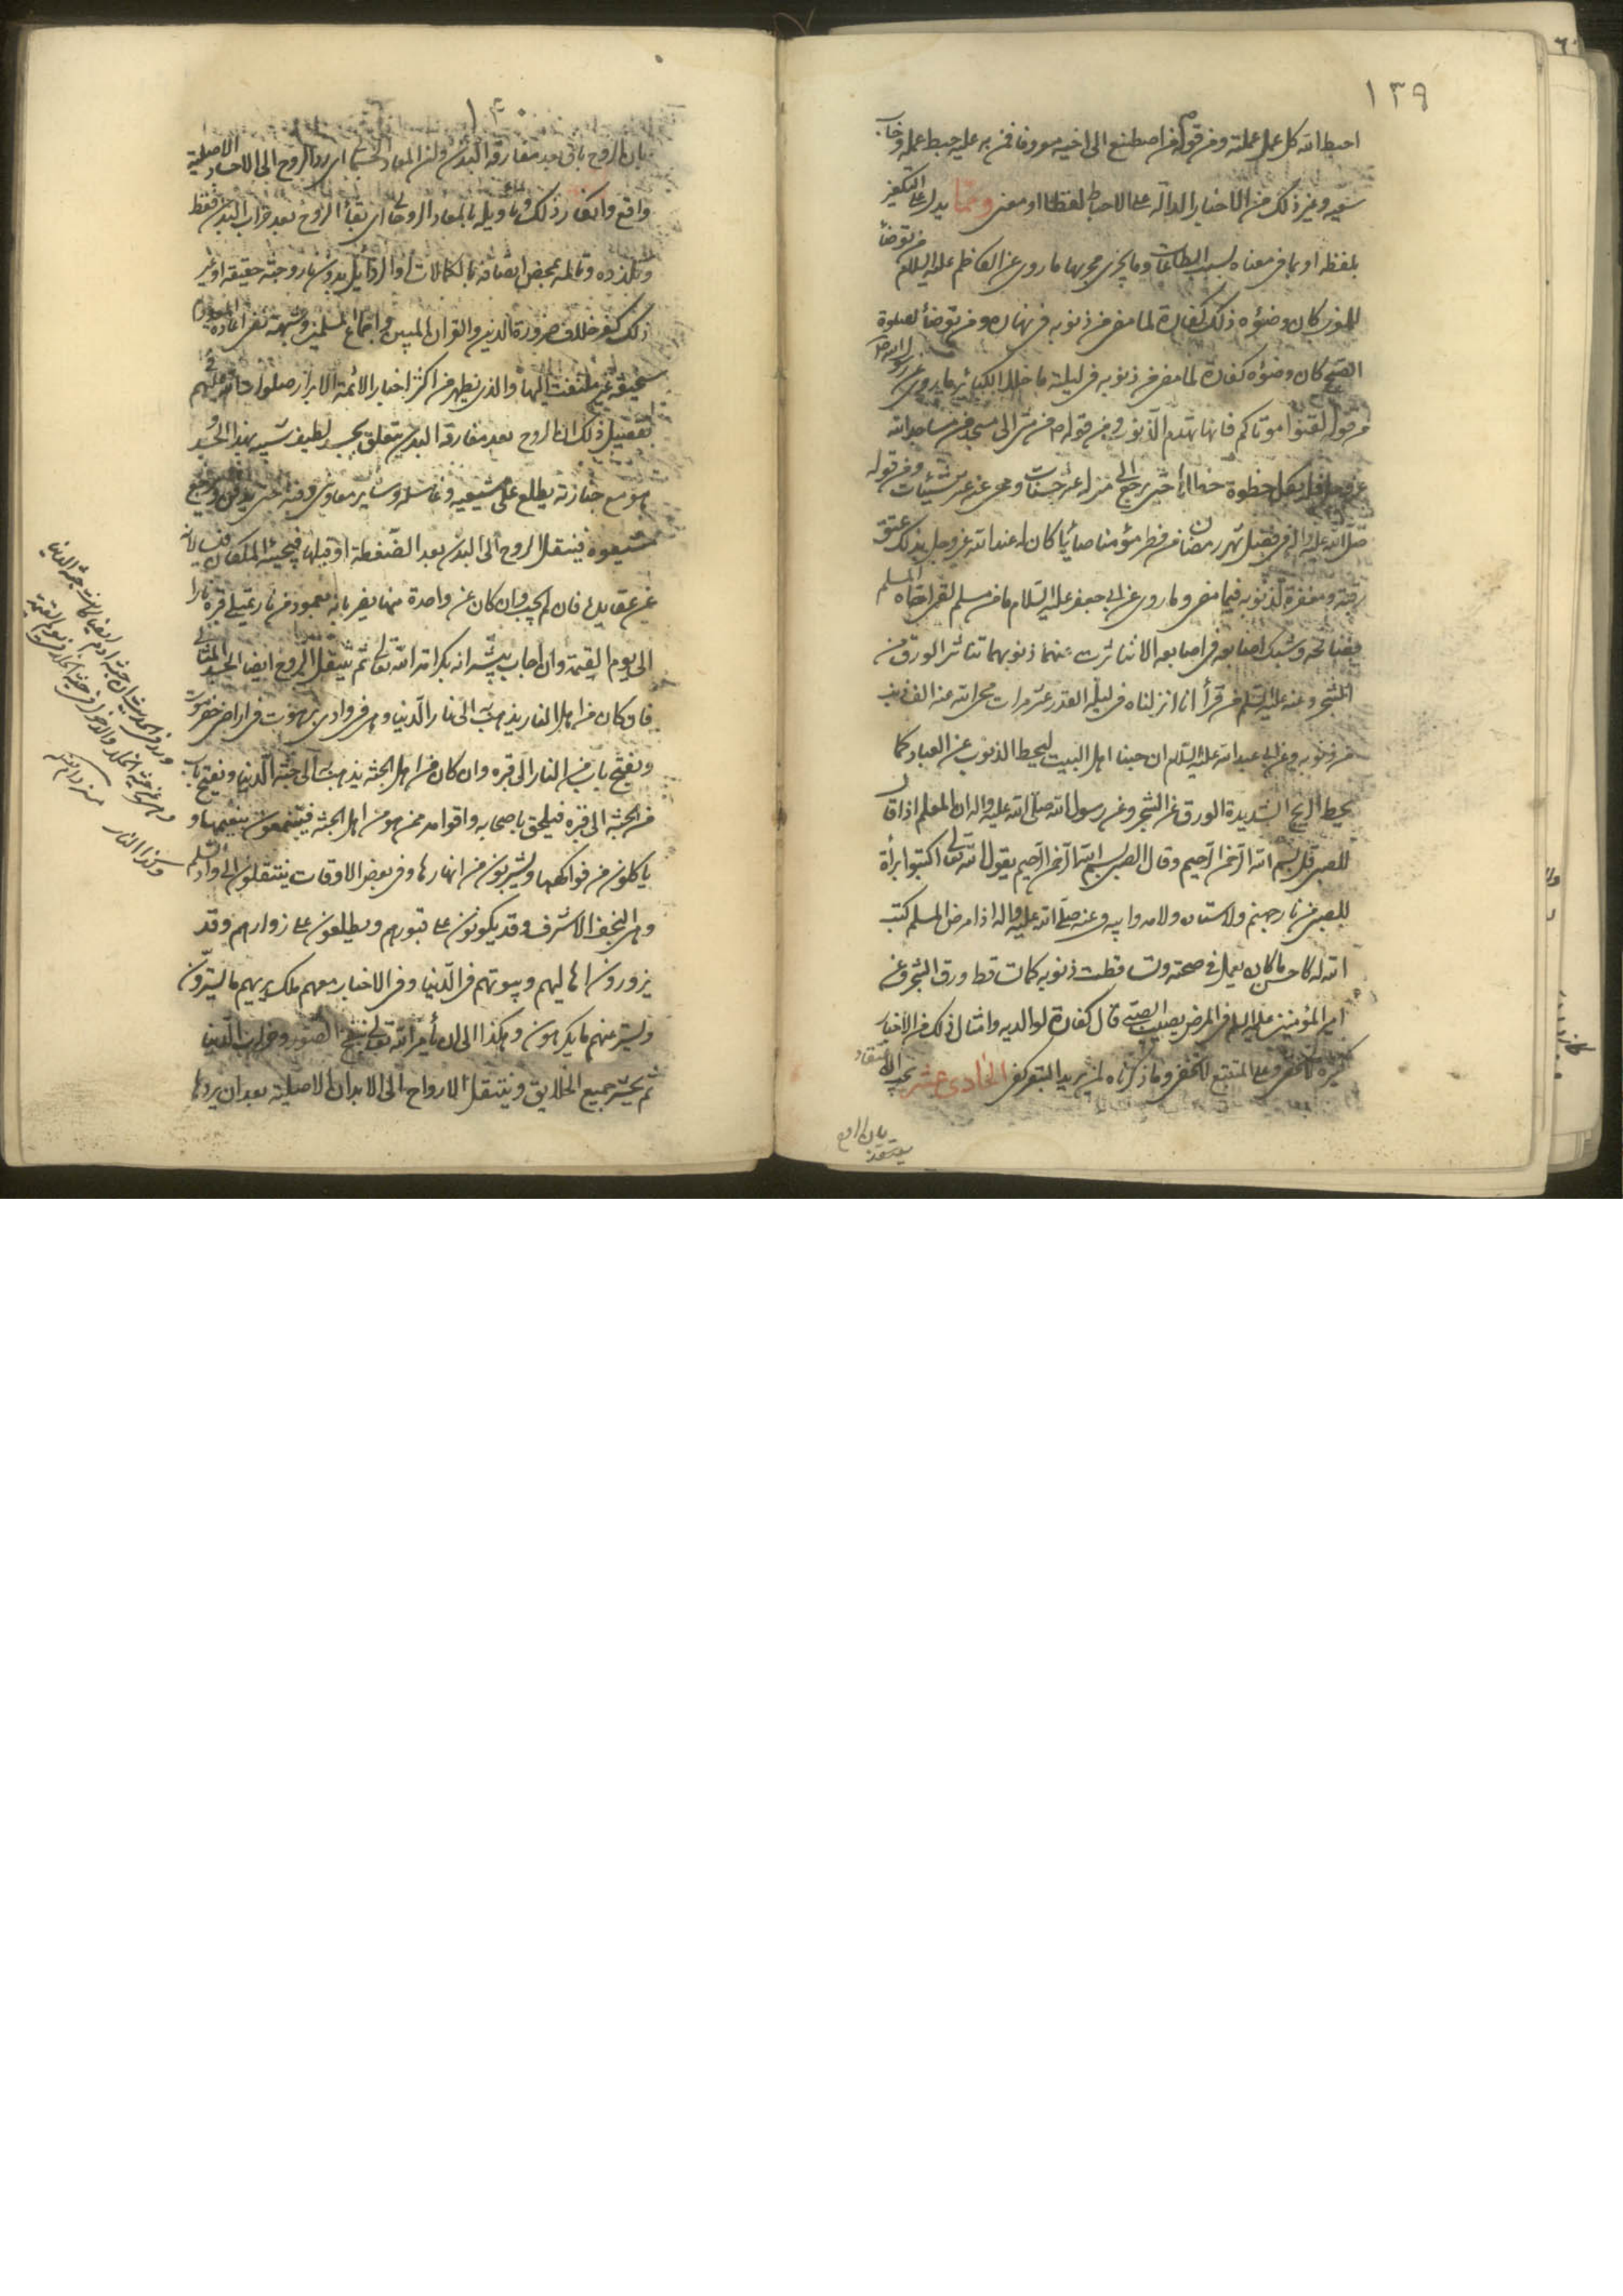 ١٣٩
احبط الله كل عمل عملته ومن قوله ص من اصطنع الى اخيه معروفا فمن به عليه حبط عمله وخاب
سعيه وغير ذلك من الاخبار الدالة على الاحباط لفظا او معنى ومما يدل على التكفير
بلفظه او بما في معناه لسبب الطاعات وما يجرى مجريها ما روى عن الكاظم عليه السلام من توضأ
للمغرب كان وضوءه ذلك كفارة لما مضى من ذنوبه في نهاره ومن توضأ لصلوة
الصبح كان وضوءه كفارة لما مضى من ذنوبه في ليلته ما خلا الكبائر وما يروى عن رسول الله ص
من قوله لقنوا موتاكم فانها تهدم الذنوب ومن قوله ص من مشى الى مسجد من مساجد الله
عز وجل فله بكل خطوة خطاها حتى يرجع الى منزله عشر حسنات ومحى عنه عشر سيئات ومن قوله
صلى الله عليه واله في فضيل شهر رمضان من فطر مؤمنا صائما كان له عند الله عز وجل بذلك عتق
رقبة ومغفرة لذنوبه فيما مضى وما روى عن ابي جعفر عليه السلام ما من مسلم لقى اخاه المسلم
فصافحه وشبك اصابعه في اصابعه الا تناثرت عنهما ذنوبهما كما تتناثر الورق من
الشجر وعنه عليه السلم من قرأ انا انزلناه في ليلة القدر عشر مرات محى الله عنه الف ذنب
من ذنوبه وعن ابي عبد الله عليه السلام ان حبنا اهل البيت ليحط الذنوب عن العباد كما
يحط الريح الشديدة الورق عن الشجر وعن رسول الله صلى الله عليه واله ان المعلم اذا قال
للصبي قل بسم الله الرحمن الرحيم وقال الصبي بسم الله الرحمن الرحيم يقول الله تعالى اكتبوا براءة
للصبي من نار جهنم ولاستاده ولامه وابيه وعنه صلى الله عليه واله اذا مرض المسلم كتب
الله له كاحسن ما كان يعمل في صحته وتساقطت ذنوبه كما تساقط ورق الشجر وعن
امير المؤمنين عليه السلم في المرض يصيب الصبي قال كفارة لوالديه وامثال ذلك من الاخبار
كثيرة لا تخفى على المتتبع وما ذكرناه لمن يريد التبصر كفى الحادي عشر يجب الاعتقاد
بان الروح
١٤٠
بان الروح باق بعد مفارقة البدن وان المعاد الجسماني اي رد الروح الى الاجساد الاصلية
واقع وانكار ذلك وتأويله بالمعاد الروحاني اي بقاء الروح بعد خراب البدن فقط
وتلذذه وتألمه بمحض اتصافه بالكمالات او الرذايل بدون نار وجنة حقيقة او غير
ذلك كفر خلاف ضرورة الدين والقران المبين واجماع المسلمين وشبهة نفى اعادة المعدوم
سخيفة غير ملتفت اليها والذي يظهر من اكثر اخبار الائمة الابرار صلوات الله عليهم في
تفصيل ذلك ان الروح بعد مفارقة البدن يتعلق بجسد لطيف شبيه بهذا الجسد و
هو مع جنازته يطلع على مشيعيه وغاسله وساير معاوني دفنه حتى يدفن ويرجع
مشيعوه فينتقل الروح الى البدن بعد الضغطة او قبلها فيجيئه الملكان فيسألانه
عن عقايده فان لم يجب وان كان عن واحدة منها يضربانه بعمود من نار تمتلى قبره نارا
الى يوم القيمة وان اجاب يبشرانه بكرامة الله تعالى ثم ينتقل الروح ايضا الى الجسد المثالي
فان كان من اهل النار يذهب به الى نار الدنيا وهى في وادي برهوت في اراضى حضرموت
ويفتح باب من النار الى قبره وان كان من اهل الجنة يذهب به الى جنة الدنيا ويفتح باب
من الجنة الى قبره فيلحق باصحابه واقوامه ممن هو من اهل الجنة فيتنعمون بنعيمها و
ياكلون من فواكهها ويشربون من انهارها وفي بعض الاوقات ينتقلون الى وادي السلم
وهى النجف الاشرف وقد يكونون على قبورهم ويطلعون على زوارهم وقد
يزورون اهاليهم وبيوتهم في الدنيا وفي الاخبار معهم ملك يريهم ما يسرون
ويستر عنهم ما يكرهون وهكذا الى ان يأمر الله تعالى بنفخ الصور وخراب الدنيا
ثم يحشر جميع الخلايق وينتقل الارواح الى الابدان الاصلية بعد ان يردها
ورد في الحديث ان جنة ادم ايضا كانت جنة الدنيا
وهى غير جنة الخلد والدخول في جنة الخلد في يوم القيمة
وكذا النار
منه دام ظله